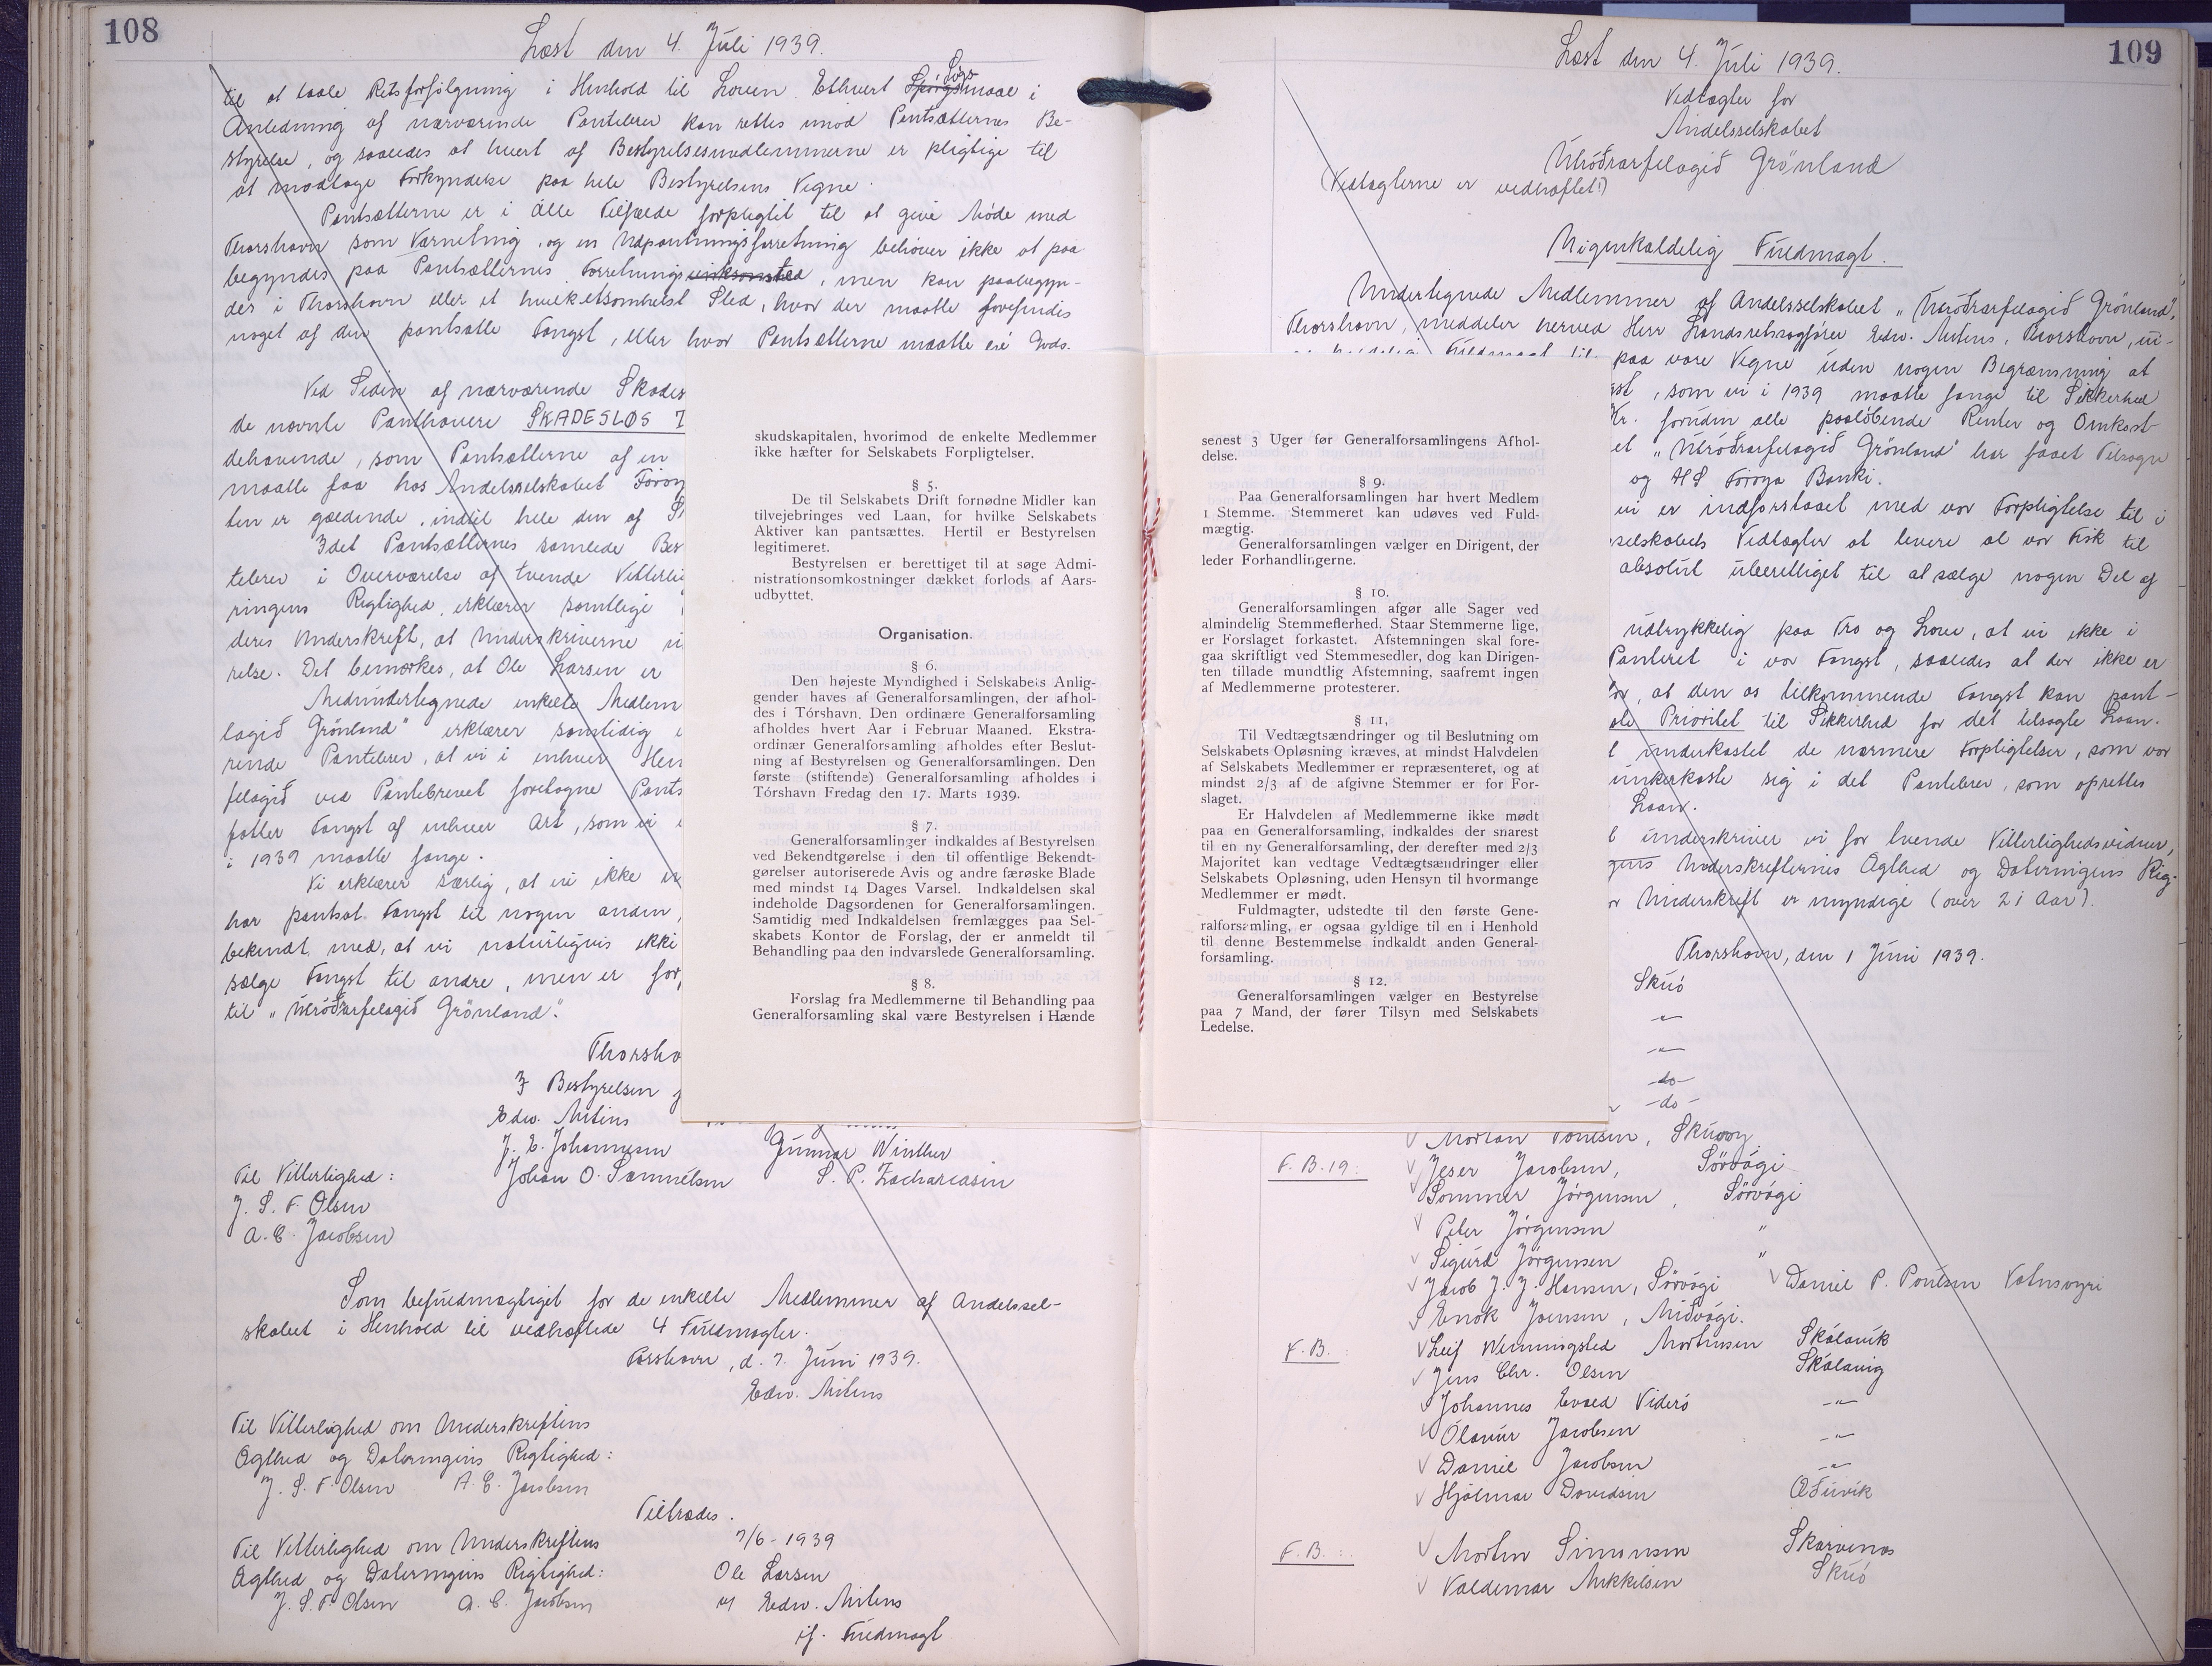 108
Læst den 4. Juli 1939.
til at taale Retsforfølgning i Henhold til Loven. Ethvert Spørgsmaal i
Søgs
Anledning af nærværende Pantebrev kan rettes imod Pantsætternes Be-
styrelse, og saaledes at hvert af Bestyrelsesmedlemmerne er pligtige til
at modtage Forkyndelse paa hele Bestyrelsens Vegne.
Pantsætterne er i alle Tilfælde forpligtet til at give Møde med
Thorshavn som Værneting, og en Udpantningsforretning behøver ikke at paa-
begyndes paa Pantsætternes Forretnings, men kan paabegyn-
des i Thorshavn eller et hvilketsomhelst Sted, hvor der maatte forefindes
noget af den pantsatte Fangst, eller hvor Pantsætterne maatte eje Gods.
Ved Siden af nærværende Skades
de nævnte Panthavere SKADESLØS T
dehavende, som Pantsætterne af en
maatte faa hos Andelsselskabet Föroy
ten er gældende, indtil hele den af S
Idet Pantsætternes samlede Bes
tebrev i Overværelse af tvende Vitterli
ringens Rigtighed, erklærer samtlige
deres Underskrift, at Underskriverne u
relse. Det bemærkes, at Ole Larsen er
Medundertegnede enkelte Medlem
lagið Grönland" erklærer samtidig
rende Pantebrev, at vi i enhver Hen
felagið ved Pantebrevet foretagne Pants
fatter Fangst af enhver Art, som vi
i 1939 maatte fange.
Vi erklærer særlig, at vi ikke
har pantsat Fangst til nogen anden,
bekendt med, at vi naturligvis ikke
sælge Fangst til andre, men er for
til "Útróðrarfelagið Grönland".
Thorsha
F Bestyrelsen
Edw. Mitens
J. E. Johannesen Gunnar Winther
Til Vitterlighed: Johan O. Samuelsen S. P. Zachariasin
J. S. F. Olsen
A. C. Jacobsen
Som befuldmægtiget for de enkelte Medlemmer af Andelssel-
skabet i Henhold til vedhæftede 4 Fuldmagter.
Torshavn, d. 7. Juni 1939.
Edw. Mitens
Til Vitterlighed om Underskriftens
Ægthed og Dateringens Rigtighed:
J. S. F. Olsen A. C. Jacobsen
Tiltrædes.
Til Vitterlighed om Underskriftens 7/6 - 1939
Ægthed og Dateringens Rigtighed: Ole Larsen
J. S. F. Olsen A. C. Jacobsen v/ Edw. Mitens
if. Fuldmagt
skudskapitalen, hvorimod de enkelte Medlemmer
ikke hæfter for Selskabets Forpligtelser.
§ 5.
De til Selskabets Drift fornødne Midler kan
tilvejebringes ved Laan, for hvilke Selskabets
Aktiver kan pantsættes. Hertil er Bestyrelsen
legitimeret.
Bestyrelsen er berettiget til at søge Admi-
nistrationsomkostninger dækket forlods af Aars-
udbyttet.
Organisation.
§ 6.
Den højeste Myndighed i Selskabets Anlig-
gender haves af Generalforsamlingen, der afhol-
des i Tórshavn. Den ordinære Generalforsamling
afholdes hvert Aar i Februar Maaned. Ekstra-
ordinær Generalforsamling afholdes efter Beslut-
ning af Bestyrelsen og Generalforsamlingen. Den
første (stiftende) Generalforsamling afholdes i
Tórshavn Fredag den 17. Marts 1939.
§ 7.
Generalforsamlinger indkaldes af Bestyrelsen
ved Bekendtgørelse i den til offentlige Bekendt-
gørelser autoriserede Avis og andre færøske Blade
med mindst 14 Dages Varsel. Indkaldelsen skal
indeholde Dagsordenen for Generalforsamlingen.
Samtidig med Indkaldelsen fremlægges paa Sel-
skabets Kontor de Forslag, der er anmeldt til
Behandling paa den indvarslede Generalforsamling.
§ 8.
Forslag fra Medlemmerne til Behandling paa
Generalforsamling skal være Bestyrelsen i Hænde
senest 3 Uger før Generalforsamlingens Afhol-
delse.
§ 9.
Paa Generalforsamlingen har hvert Medlem
1 Stemme. Stemmeret kan udøves ved Fuld-
mægtig.
Generalforsamlingen vælger en Dirigent, der
leder Forhandlingerne.
§ 10.
Generalforsamlingen afgør alle Sager ved
almindelig Stemmeflerhed. Staar Stemmerne lige,
er Forslaget forkastet. Afstemningen skal fore-
gaa skriftligt ved Stemmesedler, dog kan Dirigen-
ten tillade mundtlig Afstemning, saafremt ingen
af Medlemmerne protesterer.
§ 11,
Til Vedtægtsændringer og til Beslutning om
Selskabets Opløsning kræves, at mindst Halvdelen
af Selskabets Medlemmer er repræsenteret, og at
mindst 2/3 af de afgivne Stemmer er for For-
slaget.
Er Halvdelen af Medlemmerne ikke mødt
paa en Generalforsamling, indkaldes der snarest
til en ny Generalforsamling, der derefter med 2/3
Majoritet kan vedtage Vedtægtsændringer eller
Selskabets Opløsning, uden Hensyn til hvormange
Medlemmer er mødt.
Fuldmagter, udstedte til den første Gene-
ralforsamling, er ogsaa gyldige til en i Henhold
til denne Bestemmelse indkaldt anden General-
forsamling.
§ 12.
Generalforsamlingen vælger en Bestyrelse
paa 7 Mand, der fører Tilsyn med Selskabets
Ledelse.
109
Læst den 4. Juli 1939.
Vedtægter for
Andelsselskabet
Útróðrarfelagið Grönland
(Vedtægterne er vedhæftet!)
Uigenkaldelig Fuldmagt.
Undertegnede Medlemmer af Andelsselskabet "Útróðrarfelagið Grönland",
Thorshavn, meddeler herved Herr Landsretssagfører Edw. Mitens, Thorshavn, ui-
Fuldmagt til paa vore Vegne uden nogen Begrænsning at
gst, som vi i 1939 maatte fange til Sikkerhed
Kr. foruden alle paaløbende Renter og Omkost-
et "Útróðrarfelagið Grönland" har faaet Tilsagn
og A/S Föroya Banki.
vi er indforstaaet med vor Forpligtelse til i
selskabets Vedtægter at levere al vor Fisk til
absolut uberettiget til at sælge nogen Del af
udtrykkelig paa Tro og Love, at vi ikke i
Panteret i vor Fangst, saaledes at der ikke er
for, at den os tilkommende Fangst kan pant-
ste Prioritet til Sikkerhed for det tilsagte Laan.
t underkastet de nærmere Forpligtelser, som vor
underkaste sig i det Pantebrev, som oprettes
Laan.
t underskriver vi for tvende Vitterlighedsvidner,
Underskrifternes Ægthed og Dateringens Rig-
or Underskrift er myndige (over 21 Aar).
Thorshavn, den 1 Juni 1939.
Skúø
-"-
-"-
-do-
-do-
Mortan Poulsen, Skúoy
F. B. 19: Jeser Jacobsen, Sörvági
Sommer Jörgensen, Sörvági
Peter Jörgensen "
Sigurd Jörgensen "
Jacob J. J. Hansen, Sörvági Daniel P. Poulsen Vatnsoyri
Enok Joensen, Miðvági.
F. B. : Leif Wenningsted Mortensen Skálavík
Jens Chr. Olsen Skálavig
Johannes Evald Viderö -"-
Ólavur Jacobsen -"-
Daniel Jacobsen -"-
Hjálmar Davidsen Øðuvík
F. B. : Morten Simonsen Skarvenes
Valdemar Mikkelsen Skúø